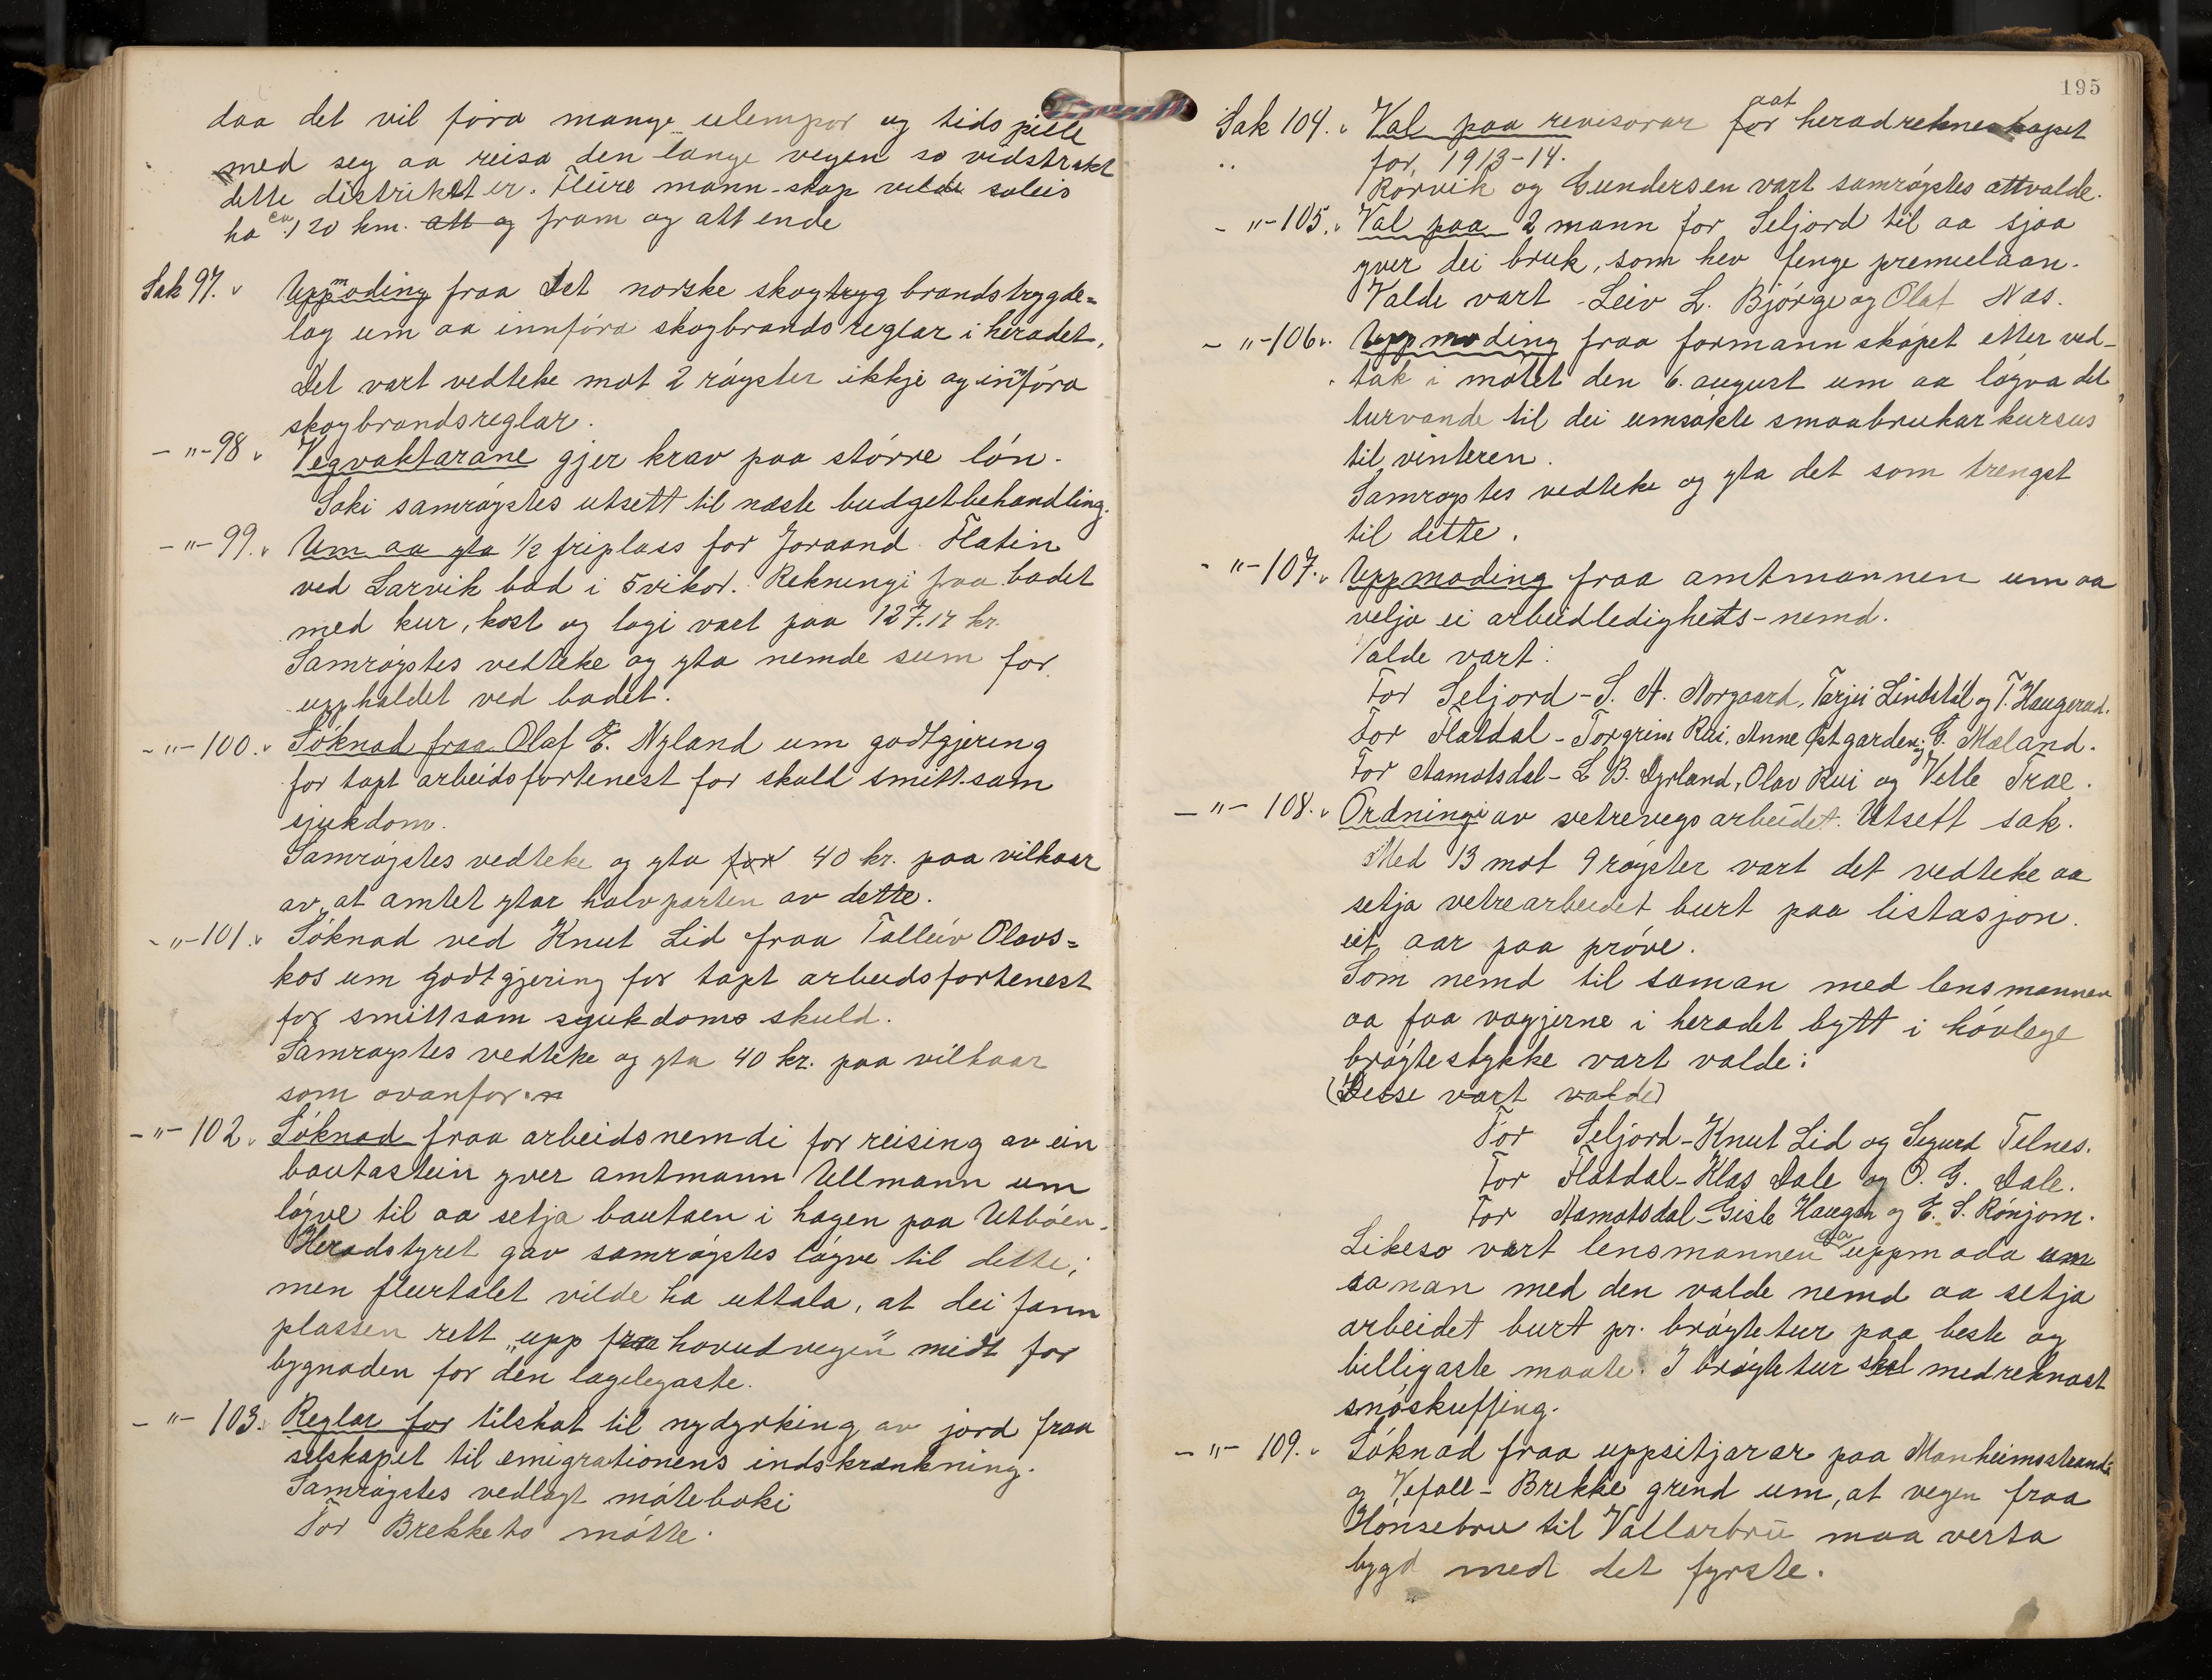 daa det vil föra mange ulempor og tidspille
med seg aa reisa den lange vegen so vidstrakt
dette distriktet er. Fleire mann-skap vilde soleis
ha ca. 120 km. att og fram og att ende
Sak 97. Uppmoding fraa Det norske skogtryg brandstrygde=
lag um aa innföra skogbrandsreglar i heradet.
Det vart vedteke mot 2 röyster ikkje og innföra
skogbrandsreglar.
-"-98 Vegvaktarane gjer krav paa större lön.
Saki samröystes utsett til næste budgetbehandling.
-"-99. Um aa yta 1/2 friplass for Joraand Flatin
ved Larvik bad i 5 vikor. Rekningi fraa badet
med kur, kost og logi vart paa 127.17 kr.
Samröystes vedteke og yta nemde sum for
upphaldet ved badet.
-"-100. Söknad fraa Olaf E. Nyland um godtgjering
for tapt arbeidsfortenest for skuld smittsam
sjukdom.
Samröystes vedteke og yta for 40 kr. paa vilkaar
av, at amtet ytar halvparten av dette.
-"-101. Söknad ved Knut Lid fraa Talleiv Olavs=
kos um godtgjering for tapt arbeidsfortenest
for smittsam sjukdoms skuld.
Samröystes vedteke og yta 40 kr. paa vilkaar
som ovanfor.
-"-102. Söknad fraa arbeidsnemdi for reising av ein
bautastein yver amtmann Ullmann um
löyve til aa setja bautaen i hagen paa Utböen.
Heradstyret gav samröystes löyve til dette;
men fleirtalet vilde ha uttala, at dei fann
plassen rett "upp fraa hovudvegen" midt for
bygnaden for den lagelegaste.
-"-103. Reglar for tilskot til nydyrking av jord fraa
selskapet til emigrationens indskrænkning.
Samröystes vedlagt möteboki
For Brekke to mötte.
195
Sak 104. Val paa revisorar for aat heradrekneskapet
for 1913-14.
Rörvik og Gundersen vart samröystes attvalde.
-"-105. Val paa 2 mann for Seljord til aa sjaa
yver dei bruk, som hev fenge premielaan.
Valde vart Leiv L. Björge og Olaf Næs.
-"-106. Uppmoding fraa formannskapet etter ved-
tak i mötet den 6. august um aa löyva det
turvande til dei umsökte smaabrukarkursus
til vinteren.
Samröystes vedteke og yta det som trengst
til dette.
-"-107. Uppmoding fraa amtmannen um aa
velja ei arbeidledighets-nemd.
Valde vart:
For Seljord - S. A. Norgaard, Tarjei Lindstöl og T. Haugerud.
For Flatdal - Torgrim Rui, Anne Östgarden og G. Mæland.
For Aamotsdal - L. B. Dyrland, Olav Rui og Vetle Træe.
-"-108. Ordningi av vetrevegsarbeidet. Utsett sak.
Med 13 mot 9 röyster vart det vedteke aa
setja vetrearbeidet burt paa lisitasjon
eit aar paa pröve.
Som nemd til saman med lensmannen
aa faa vegjerne i heradet bytt i hövlege
bröytestykke vart valde:
(Desse vart valde)
For Seljord - Knut Lid og Sigurd Telnes.
For Flatdal - Klas Dale og O. G. Dale.
For Aamotsdal - Gisle Haugen og E. S. Rönjom.
Likeso vart lensmannen uppmoda um
saman med den valde nemd aa setja
arbeidet burt pr. bröytetur paa beste og
billigaste maate. I bröytetur skal medreknast
snöskuffing.
-"-109. Söknad fraa uppsitjarar paa Manheimsstrandi
og Vefall-Brekke grend um, at vegen fraa
Hönsebru til Vallarbru maa verta
bygd med det fyrste.